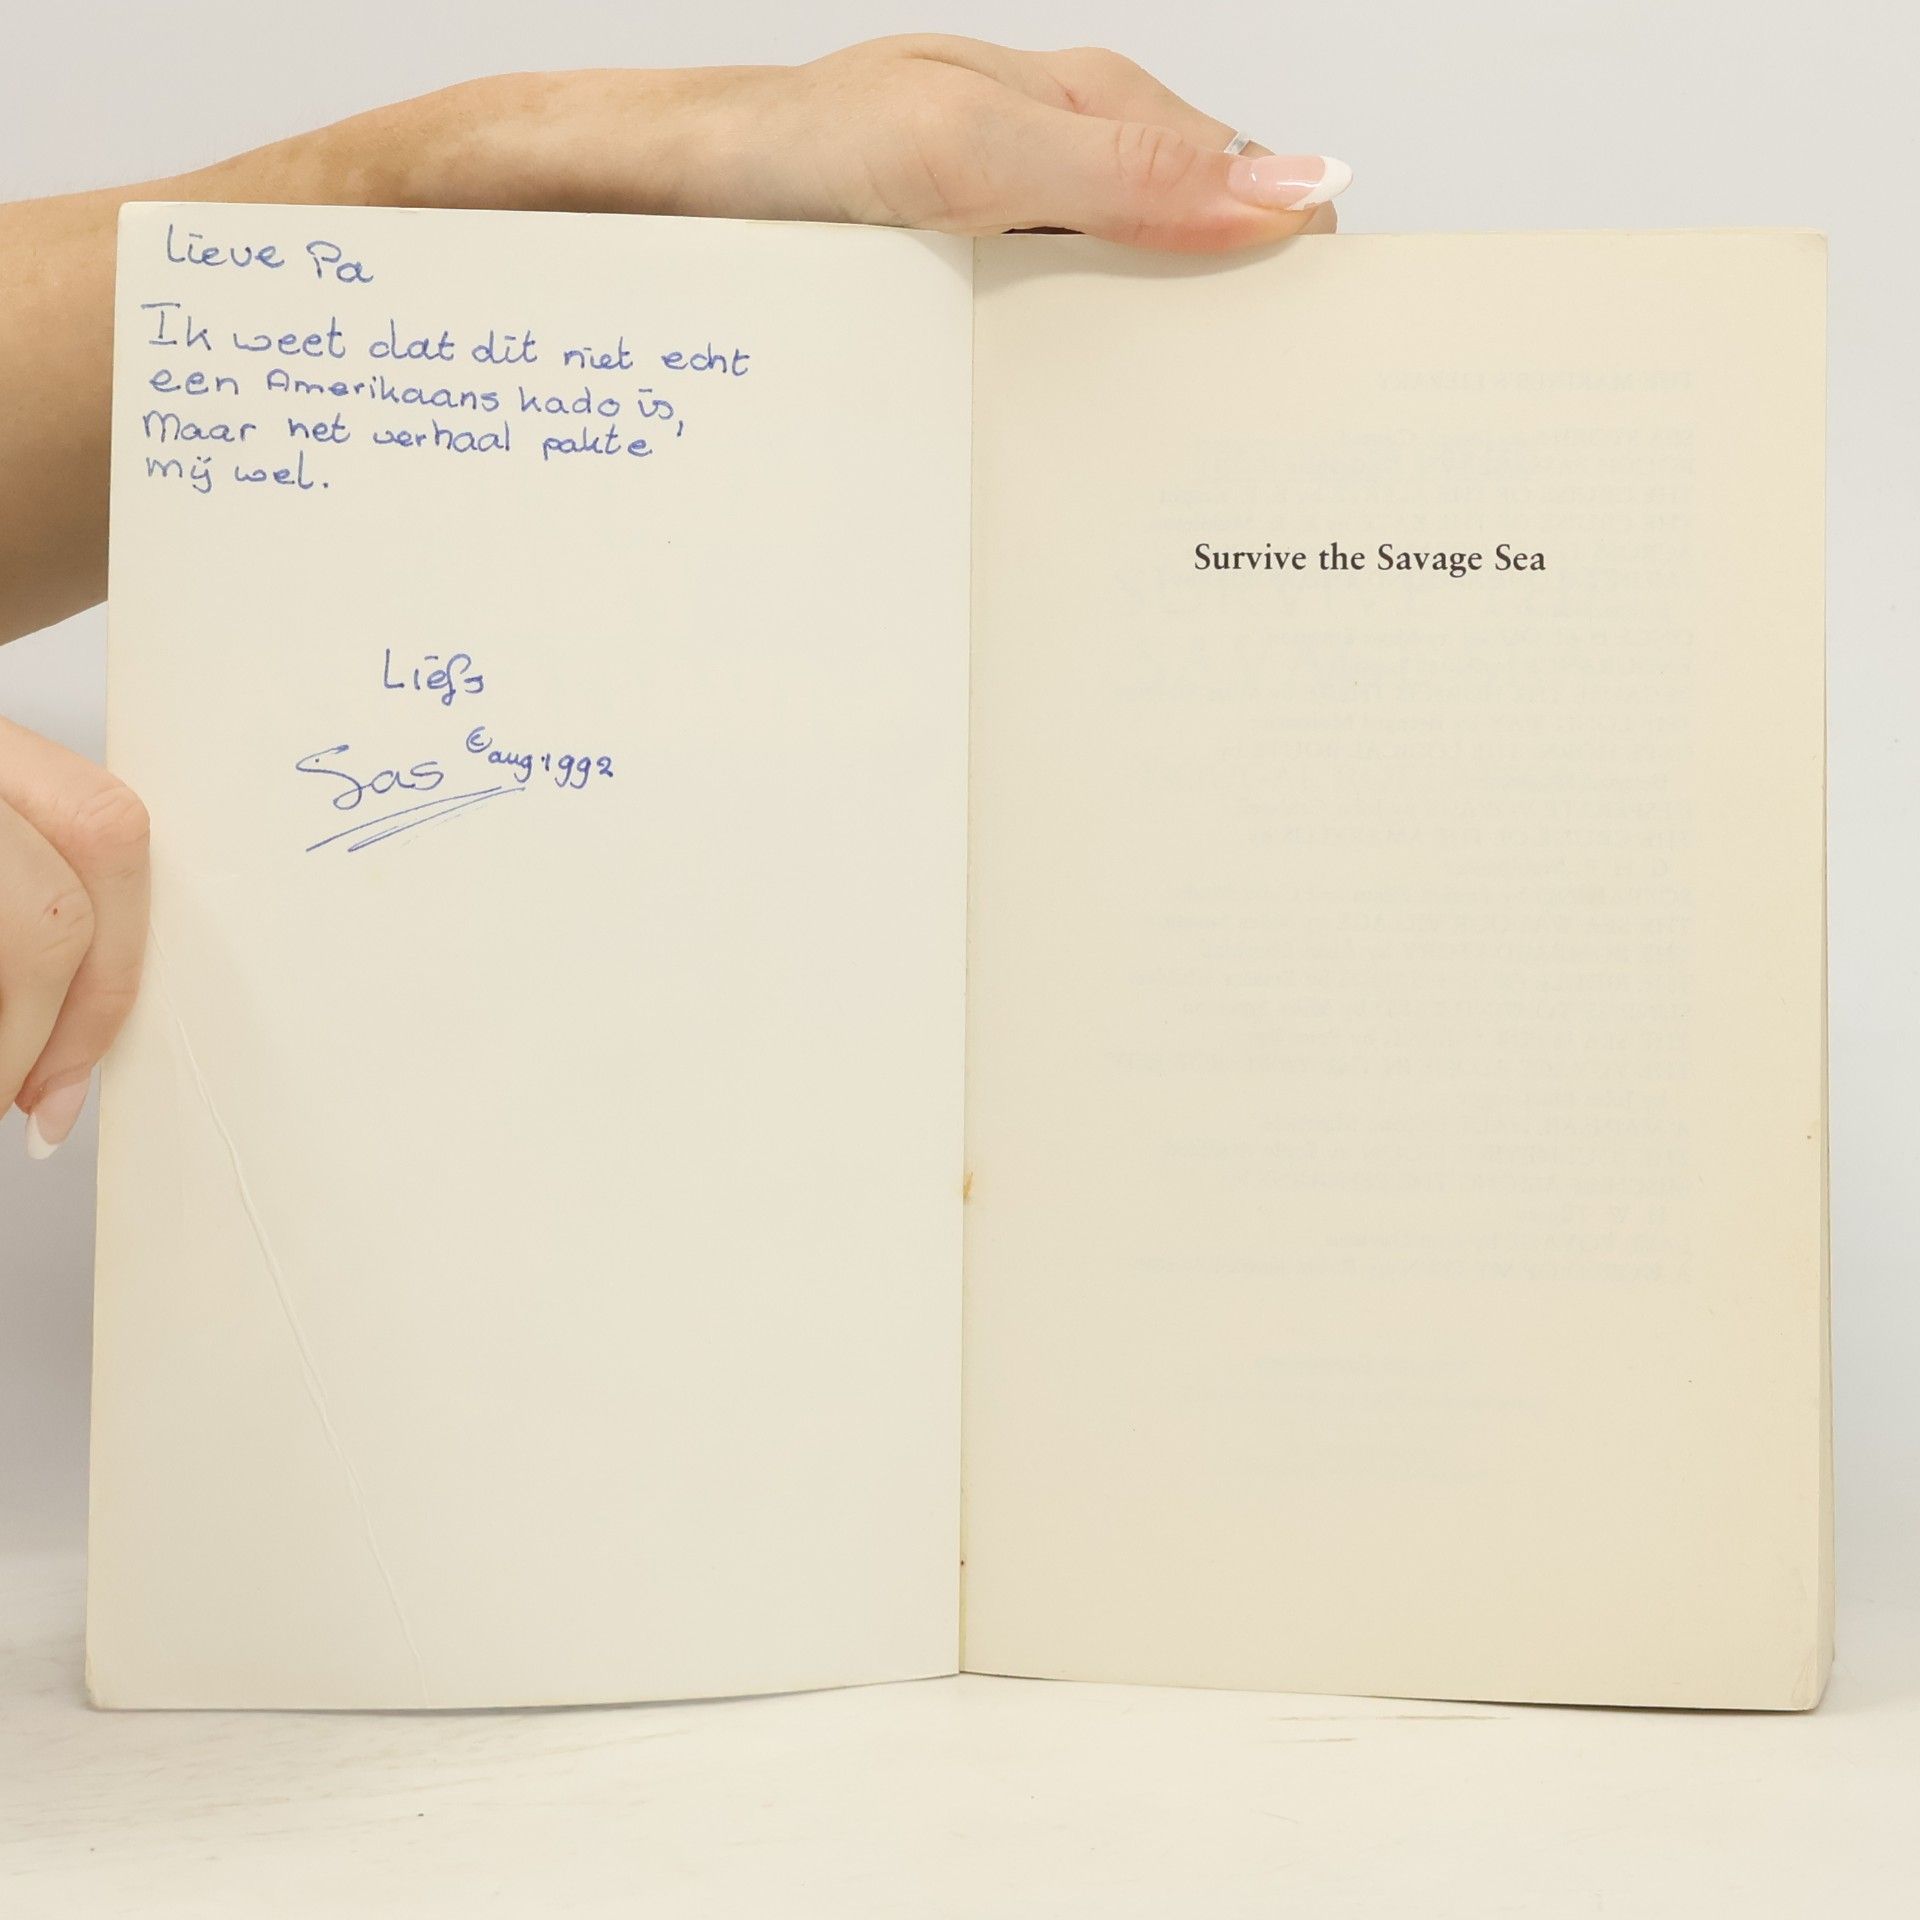 Lieve Pa
Ik weet dat dit niet echt
een Amerikaans kado is,
Maar het verhaal pakte
mij wel.
Liefs
Sas aug. 1992
Survive the Savage Sea